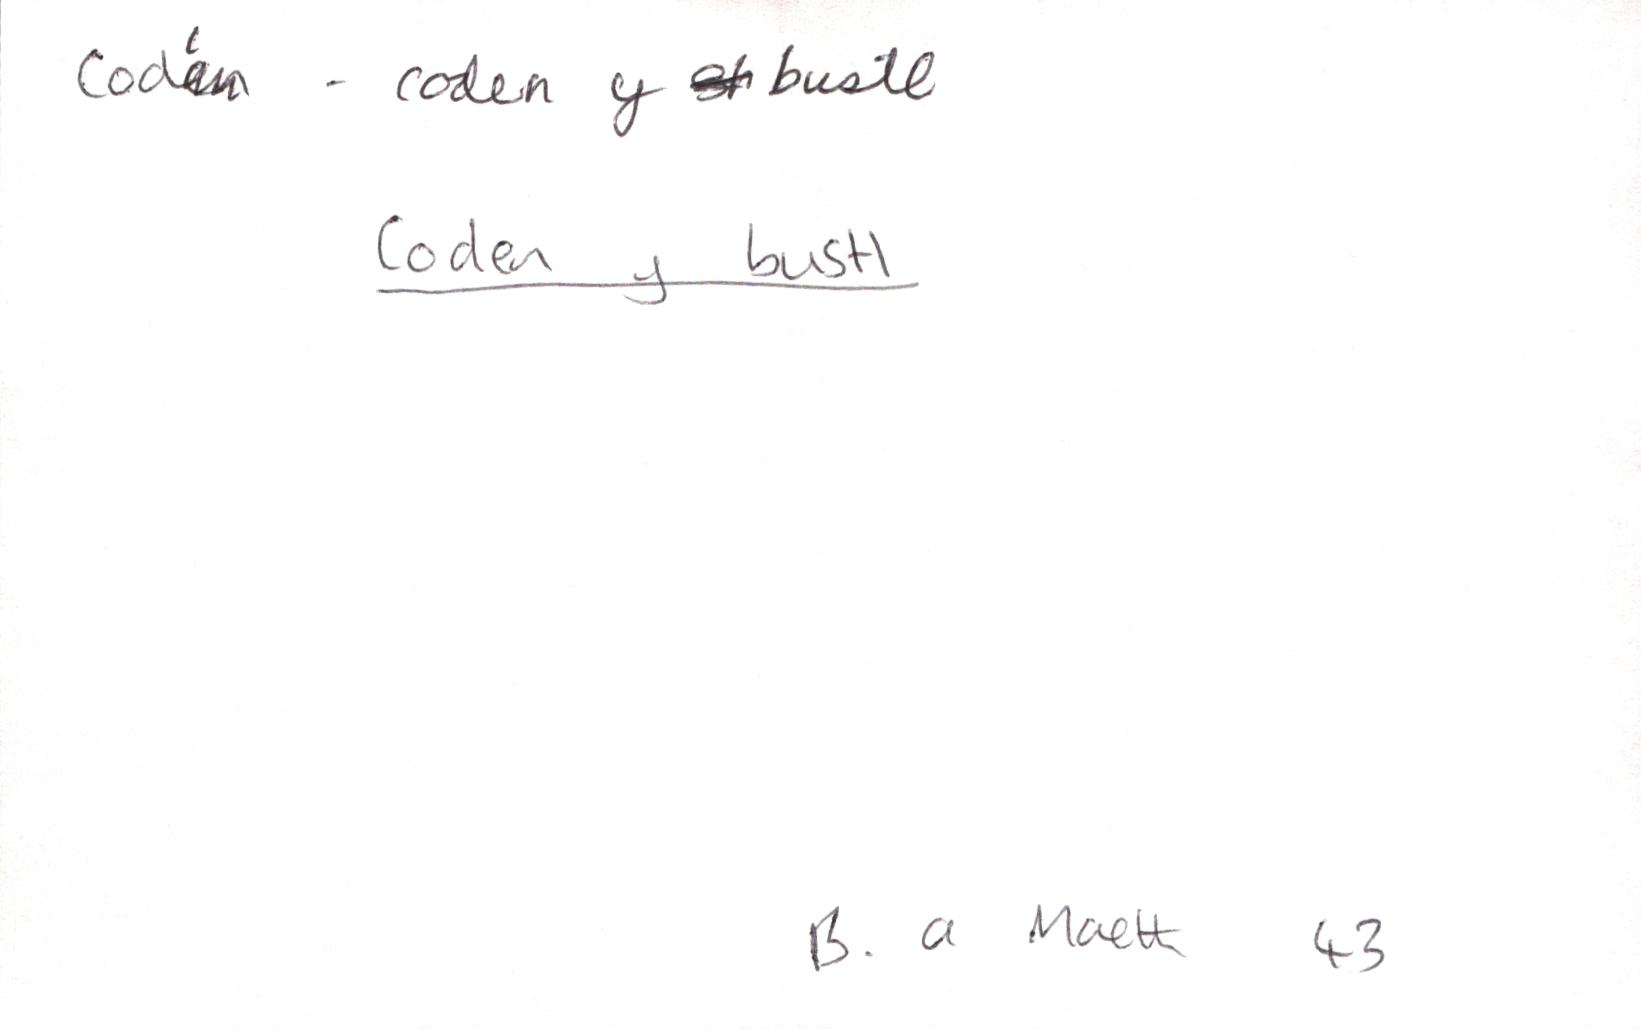 Coden - coden y bustl
Coden y bustl
B. a Maeth 43